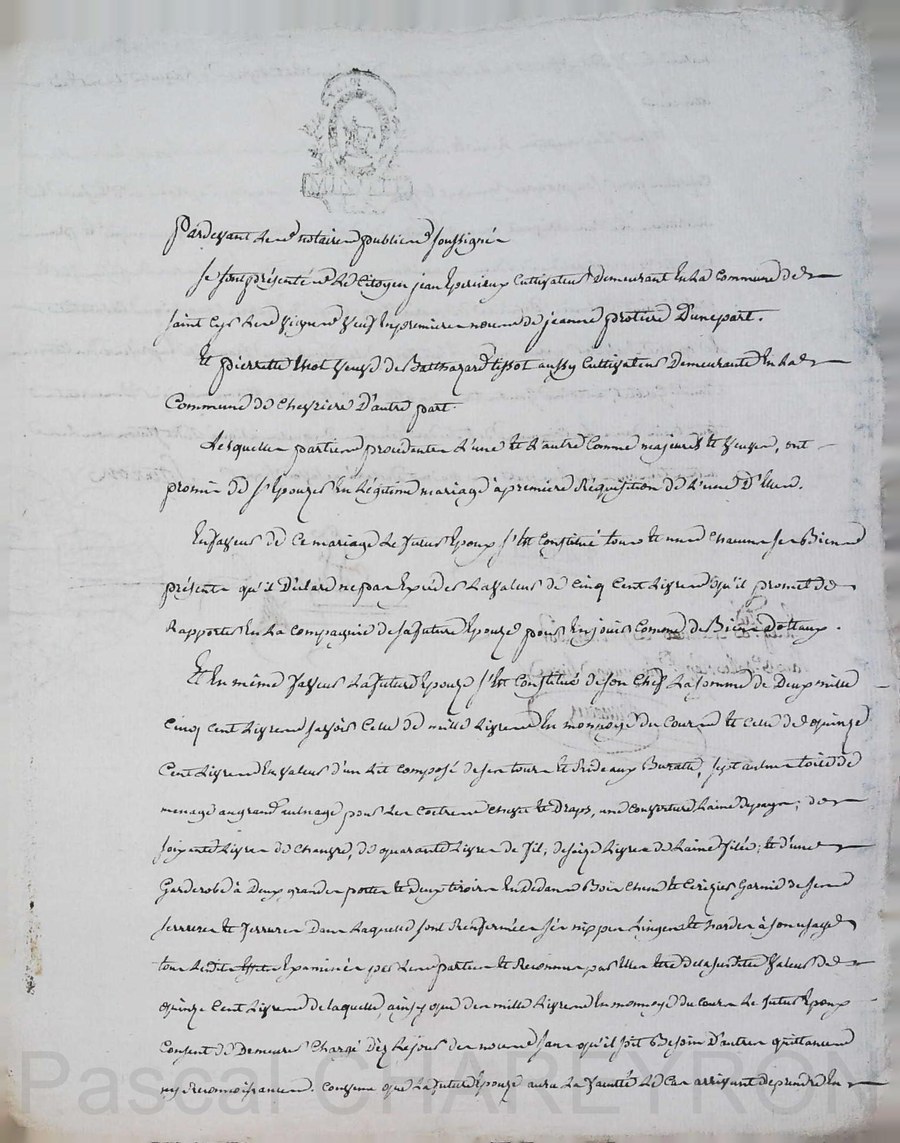 MINUTE
Pardevant Les notaires publics soussignés
se sont présentés Le Citoyen jean Epercieux Cultivateur Demeurant En La Commune de
saint Cyr Les Vignes Veuf En premieres noces de jeanne protiere D'une part.
Et pierrette Veuve de Balthazard tissot aussy Cultivateur Demeurante En La
Commune de Chevriere D'autre part.
Lesquelles parties procedentes L'une et L'autre Comme majeures et Veuves, ont
promis de s'Epouzer En Légitime mariage à premiere Réquisition de L'une D'Elles.
En faveur de Ce mariage Le futur Epoux s'est Constitué tous et uns Chacuns ses Biens
présents qu'il Déclare ne pas Exceder La valeur de Cinq Cent Livres qu'il promet de
Rapporter En La Compagnie de sa future Epouze pour En jouir Comme de Biens Dotaux.
Et En même faveur La future Epouze s'est Constitué de son Chef La somme de Deux mille
Cinq Cent Livres savoir Celle de mille Livres En monnoye du Cours et Celle de quinze
Cent Livres En valeur d'un Lit Composé de ses tours et Rideaux Buratte, sept aulnes toile de
menage au grand aulnage pour Les Coetres Chevet et Draps, une Couverture Laine Depayn; de
soixante Livres de Chanvre, de quarante Livres de fil, de seize Livres de Laine filée; et d'une
Garderobe à Deux grandes portes et Deux tiroirs En Dedans Bois Chene et Cerizier Garnie de ses
serrures et ferrures Dans Laquelle sont Renfermées ses nippes Linges et hardes à son usage
tous Lesdits Effets Examinés par Les parties et Reconnus par Elles Etre de La susditte Valeur de
quinze Cent Livres de Laquelle, ainsy que des mille Livres En monnoye du Cours Le futur Epoux
Consent de Demeurer Chargé Dèz Le jour des noces sans qu'il soit Besoin D'autres quittances
ny Reconnoissances. Convenu que La future Epouze aura La faculté Le Cas arrivant de prendre En
Pascal CHAREYRON